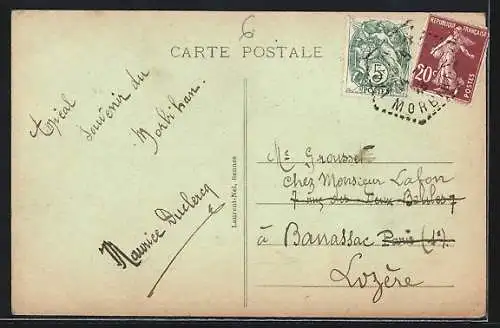 6
CARTE POSTALE
RÉPUBLIQUE FRANÇAISE
5
POSTES
20c
POSTES
MORB
Souvenir du
Morbihan.
Maurice Duclercq
Laurent-Nel, Rennes
Mr Grousset
chez Monsieur Lafon
7 rue des Deux-Boules 7
à Banassac Paris (1r)
Lozère